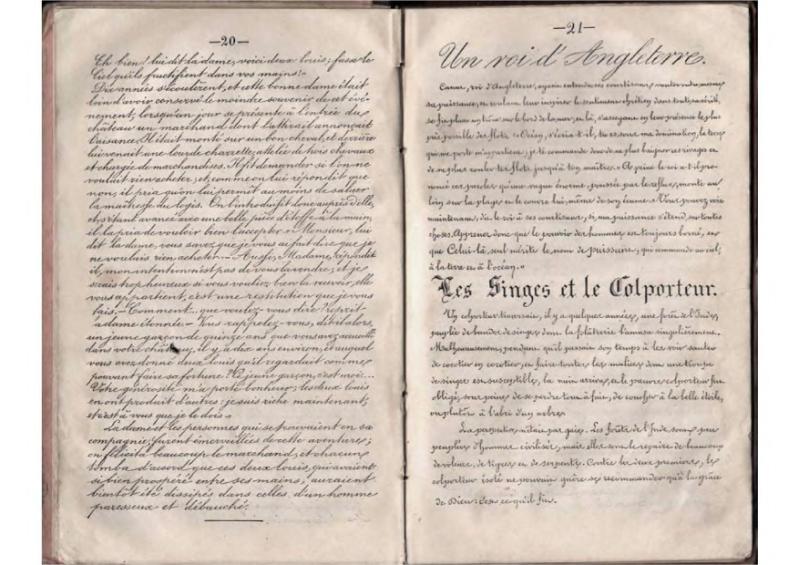 —20—
Eh bien! lui dit la dame, voici deux louis; fasse le
Ciel qu'ils fructifient dans vos mains!»
Dix années s'écoulèrent, et cette bonne dame était
loin d'avoir conservé le moindre souvenir de cet évé-
nement, lorsqu'un jour se présente à l'entrée du
château un marchand dont l'attirail annonçait
l'aisance. Il était monté sur un bon cheval, et derrière
lui venait une lourde charrette, attelée de trois chevaux
et chargée de marchandises. Il fit demander si l'on ne
voulait rien acheter, et, comme on lui répondit que
non, il pria qu'on lui permît au moins de saluer
la maîtresse du logis. On l'introduisit donc auprès d'elle,
et, s'étant avancé avec une belle pièce d'étoffe à la main,
il la pria de vouloir bien l'accepter. «Monsieur, lui
dit la dame, vous savez que je vous ai fait dire que je
ne voulais rien acheter.— Aussi, Madame, répondit
il, mon intention n'est pas de vous la vendre, et je
serais trop heureux si vous vouliez bien la recevoir, elle
vous appartient, c'est une restitution que je vous
fais.— Comment... que voulez-vous dire? reprit
la dame étonnée.— Vous rappelez-vous, dit-il alors,
un jeune garçon de quinze ans que vous avez accueilli
dans votre château, il y a dix ans environ, et auquel
vous avez donné deux louis qu'il regardait comme
pouvant faire sa fortune? Ce jeune garçon, c'est moi...
Votre générosité m'a porté bonheur; les deux louis
en ont produit d'autres: je suis riche maintenant,
et c'est à vous que je le dois.»
La dame et les personnes qui se trouvaient en sa
compagnie furent émerveillées de cette aventure;
on félicita beaucoup le marchand, et chacun
tomba d'accord que ces deux louis, qui avaient
si bien prospéré entre ses mains, auraient
bientôt été dissipés dans celles d'un homme
paresseux et débauché.
—21—
Un roi d'Angleterre.
Canut, roi d'Angleterre, ayant entendu ses courtisans vanter outre mesure
sa puissance, et voulant leur inspirer le sentiment chrétien dans toute sa vérité,
se fit placer un trône sur le bord de la mer, et là, s'asseyant en leur présence le plus
près possible des flots, «Océan, s'écria-t-il, tu es sous ma domination, la terre
qui me porte m'appartient; je te commande donc de ne plus baigner ces rivages et
de ne plus rouler tes flots jusqu'à ton maître.» À peine le roi a-t-il pro-
noncé ces paroles qu'une vague énorme, poussée par le reflux, monte au
loin sur la plage et le couvre lui-même de son écume. «Vous pouvez voir
maintenant, dit le roi à ses courtisans, si ma puissance s'étend sur toutes
choses. Apprenez donc que le pouvoir des hommes est toujours borné, et
que Celui-là seul mérite le nom de puissant, qui commande au ciel,
à la terre et à l'océan.»
Les Singes et le Colporteur.
Un colporteur traversait, il y a quelques années, une forêt de l'Inde,
peuplée de bandes de singes dont la folâtrerie l'amusa singulièrement.
Malheureusement, pendant qu'il passait son temps à les voir sauter
de cocotier en cocotier, et faire toutes les malices dont une troupe
de singes est susceptible, la nuit arriva, et le pauvre colporteur fut
obligé, sous peine de se perdre tout à fait, de coucher à la belle étoile,
ou plutôt à l'abri d'un arbre.
La perspective n'était pas gaie. Les forêts de l'Inde sont peu
peuplées d'hommes civilisés, mais elles sont le repaire de beaucoup
de voleurs, de tigres et de serpents. Contre les deux premiers, le
colporteur isolé ne pouvait guère se recommander qu'à la grâce
de Dieu: c'est ce qu'il fit.